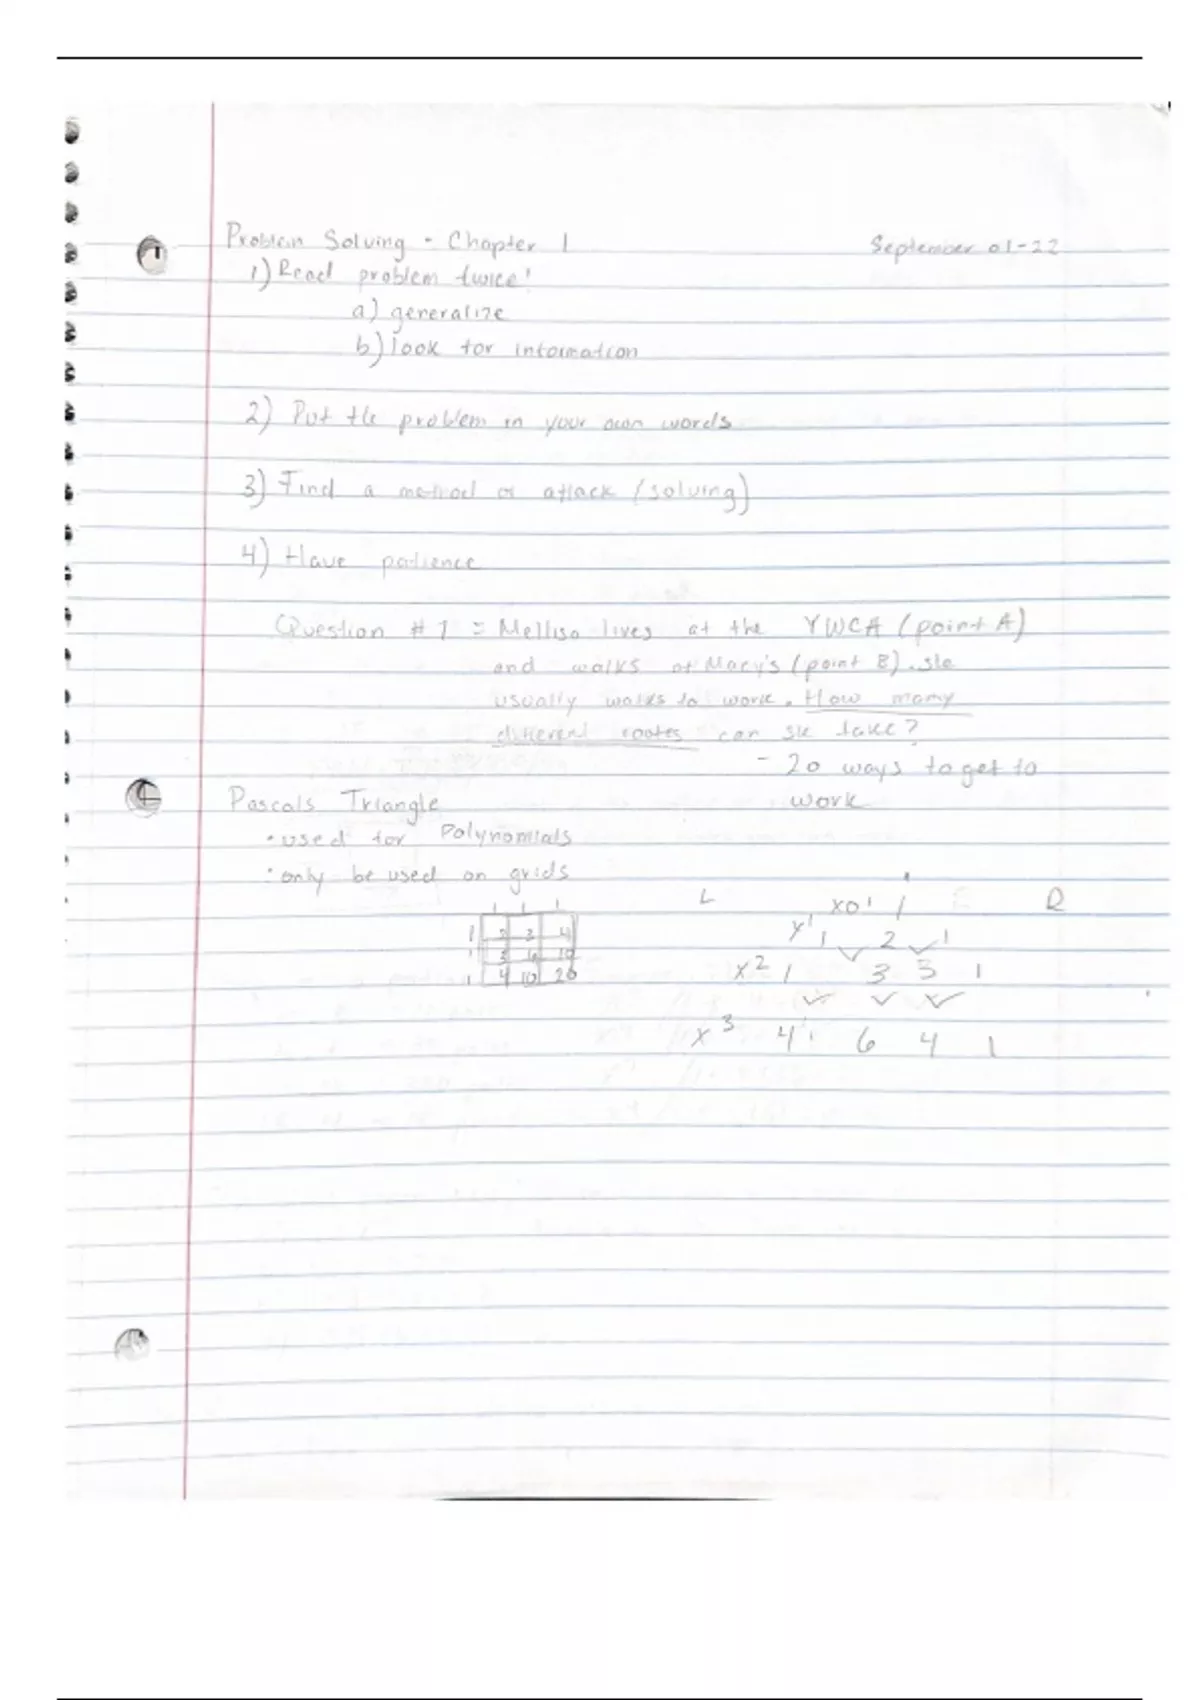 Problem Solving - Chapter 1 September 01-22
1) Read problem twice!
a) generalize
b) look for information
2) Put the problem in your own words
3) Find a method of attack (solving)
4) Have patience
Question #1 = Mellisa lives at the YWCA (point A)
and walks at Macy's (point B). She
usually walks to work. How many
different routes can she take?
- 20 ways to get to
work
Pascals Triangle
• used for Polynomials
• only be used on grids
1 1 1 L x0 1 1 R
1 2 3 4 x1 1 2 1
1 3 6 10
1 4 10 20 x2 1 3 3 1
x3 4 1 6 4 1